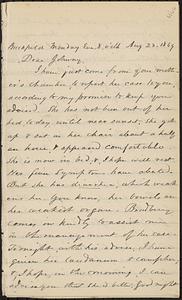 Brookfield Monday eve. 8. o'clk Aug 23. 1869
Dear Johnny,
I have just come from your moth-
er's chamber to report her case to you,
according to my promise to keep you
advised. She has not been out of her
bed today until near sunset, she got
up & sat in her chair about a half
an hour & appeared comfortable.
She is now in bed, & I hope will rest.
Her fever symptoms have abated.
But she has diarrhea, which weak-
ens her. You know, her bowels are
her weakest organs. Bradbury
comes on kindly to assist me
in the management of her case.
Tonight, with his advice, I have
given her laudanum & camphor,
& I hope, in the morning, I can
advise you that she's better. Good night